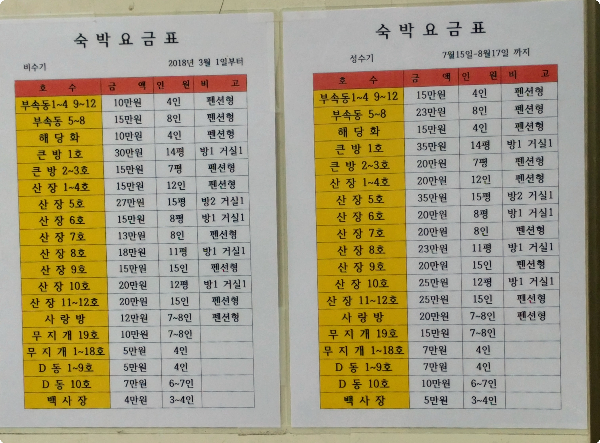 숙박요금표
비수기 2018년 3월 1일부터
호 수 금 액 인 원 비 고
부속동1~4 9~12 10만원 4인 펜션형
부속동 5~8 15만원 8인 펜션형
해 당 화 10만원 4인 펜션형
큰 방 1호 30만원 14평 방1 거실1
큰 방 2~3호 15만원 7평 펜션형
산 장 1~4호 15만원 12인 펜션형
산 장 5호 27만원 15평 방2 거실1
산 장 6호 15만원 8평 방1 거실1
산 장 7호 13만원 8인 펜션형
산 장 8호 18만원 11평 방1 거실1
산 장 9호 15만원 15인 펜션형
산 장 10호 20만원 12평 방1 거실1
산 장 11~12호 20만원 15인 펜션형
사 랑 방 12만원 7~8인 펜션형
무 지 개 19호 10만원 7~8인
무 지 개 1~18호 5만원 4인
D 동 1~9호 5만원 4인
D 동 10호 7만원 6~7인
백 사 장 4만원 3~4인
숙박요금표
성수기 7월15일~8월17일 까지
호 수 금 액 인 원 비 고
부속동1~4 9~12 15만원 4인 펜션형
부속동 5~8 23만원 8인 펜션형
해 당 화 15만원 4인 펜션형
큰 방 1호 35만원 14평 방1 거실1
큰 방 2~3호 20만원 7평 펜션형
산 장 1~4호 20만원 12인 펜션형
산 장 5호 35만원 15평 방2 거실1
산 장 6호 20만원 8평 방1 거실1
산 장 7호 20만원 8인 펜션형
산 장 8호 23만원 11평 방1 거실1
산 장 9호 20만원 15인 펜션형
산 장 10호 25만원 12평 방1 거실1
산 장 11~12호 25만원 15인 펜션형
사 랑 방 20만원 7~8인 펜션형
무 지 개 19호 15만원 7~8인
무 지 개 1~18호 7만원 4인
D 동 1~9호 7만원 4인
D 동 10호 10만원 6~7인
백 사 장 5만원 3~4인